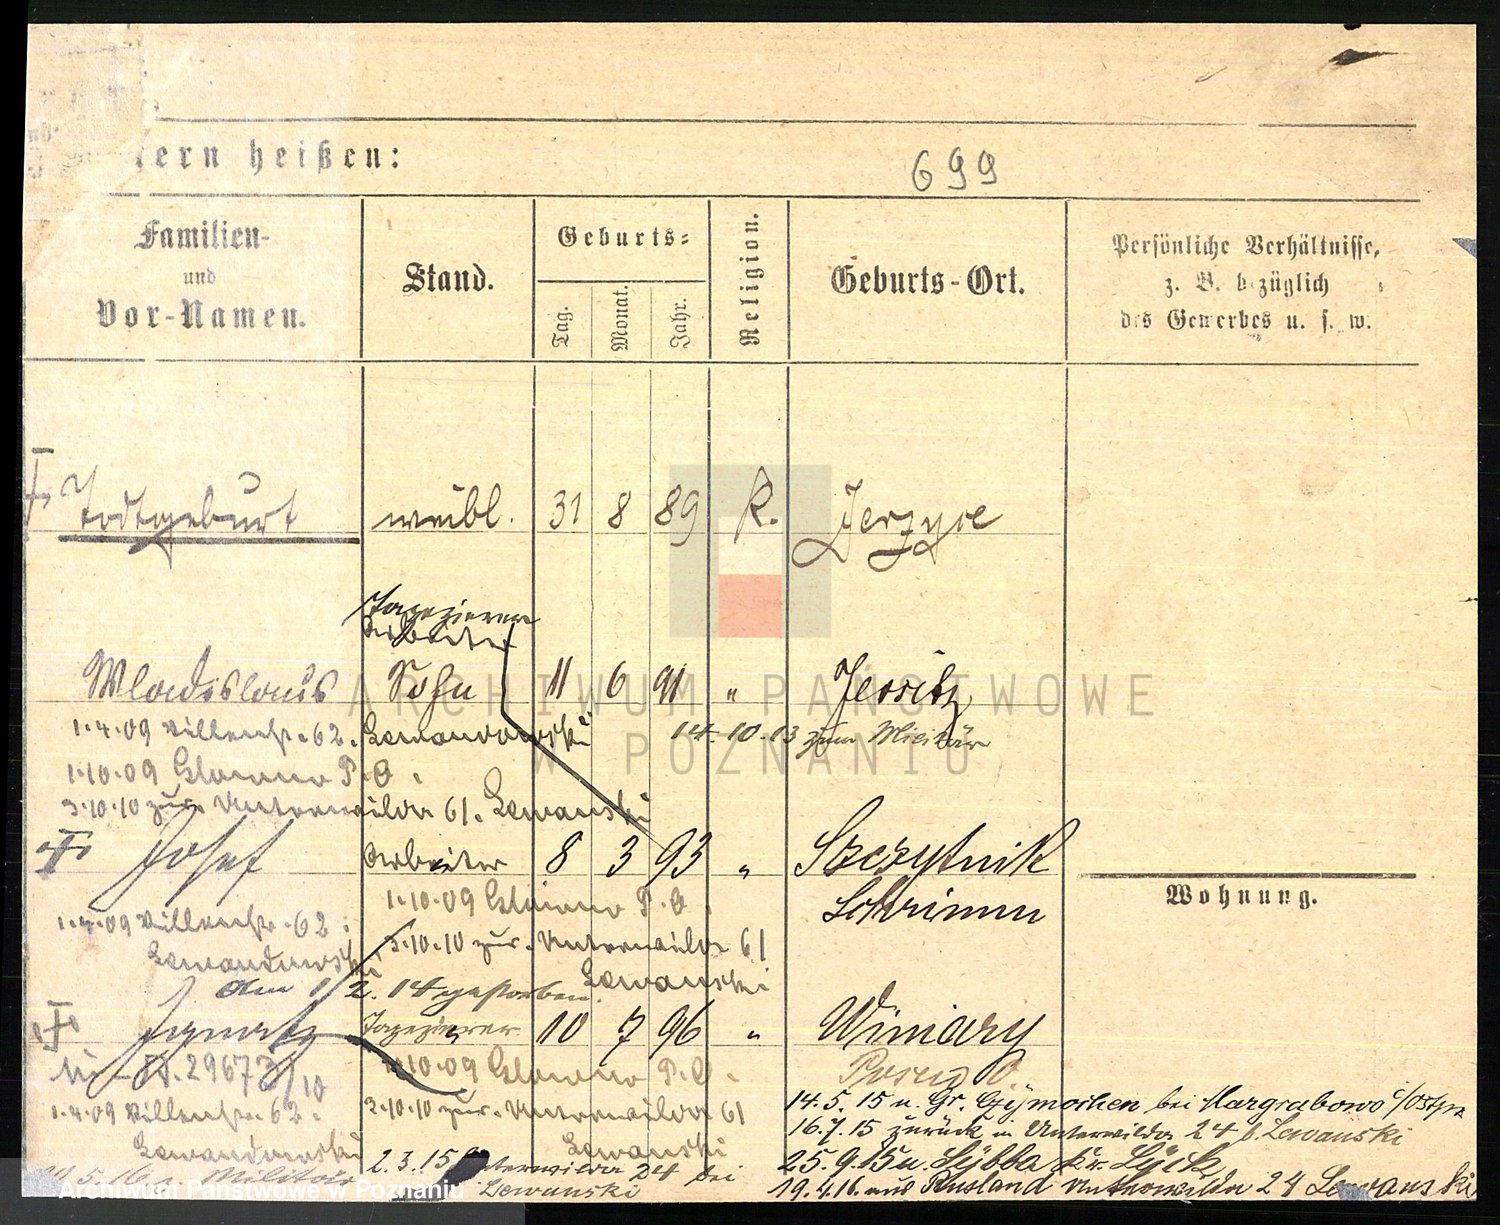 ern heißen:
699
Familien-
und
Vor-Namen.
Stand.
Geburts-
Tag.
Monat.
Jahr.
Religion.
Geburts-Ort.
Persönliche Verhältnisse,
z. B. bezüglich
des Gewerbes u. s. w.
Todtgeburt weibl. 31 8 89 K. Jerzyce
Tapezierer
Arbeiter
Wladislaus Sohn 11 6 91 " Jersitz
1.4.09 62. Lewandowski 14.10.13 zum Militär
1.10.09 Glowno P.O.
3.10.10 zur. Unterwilda 61. Lewanski
Josef Arbeiter 8 3 93 " Szczytnik
1.10.09 Glowno P.O. Schrimm
Wohnung.
1.4.09 62.
3.10.10 zur. Unterwilda 61
Lewandowski Lewanski
Am 1/2. 14 gestorben.
Ignatz Tapezierer 10 7 96 " Winiary
29673/10 1.10.09 Glowno P.O. Posen O.
1.4.09 62. 3.10.10 zur. Unterwilda 61
Lewandowski Lewanski
14.5.15 n. Gr. bei Margrabowo
16.7.15 zurück in Unterwilda 24 b. Lewanski
2.3.15 Unterwilda 24 bei
Lewanski
25.9.15 n. Lybba Kr. Lyck
Militär
19.4.16. aus Rusland Unterwilda 24 Lewanski
ARCHIWUM PAŃSTWOWE
W POZNANIU
Archiwum Państwowe w Poznaniu